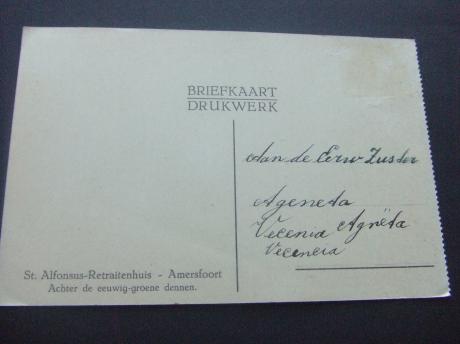 BRIEFKAART
DRUKWERK
Aan de Eerw Zuster
Ageneta
Vecenia Agnèta
Vecencia
St. Alfonsus-Retraitenhuis - Amersfoort
Achter de eeuwig-groene dennen.